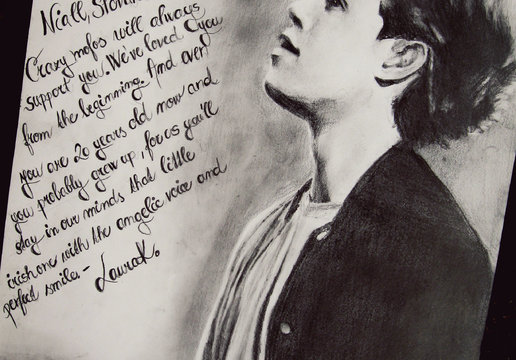 Niall,
Crazy mofos will always
support you. We've loved you
from the beginning. And even
you are 20 years old now and
you probably grew up, for us you'll
stay in our minds that little
irish one with the angelic voice and
perfect smile. -
LauraK.